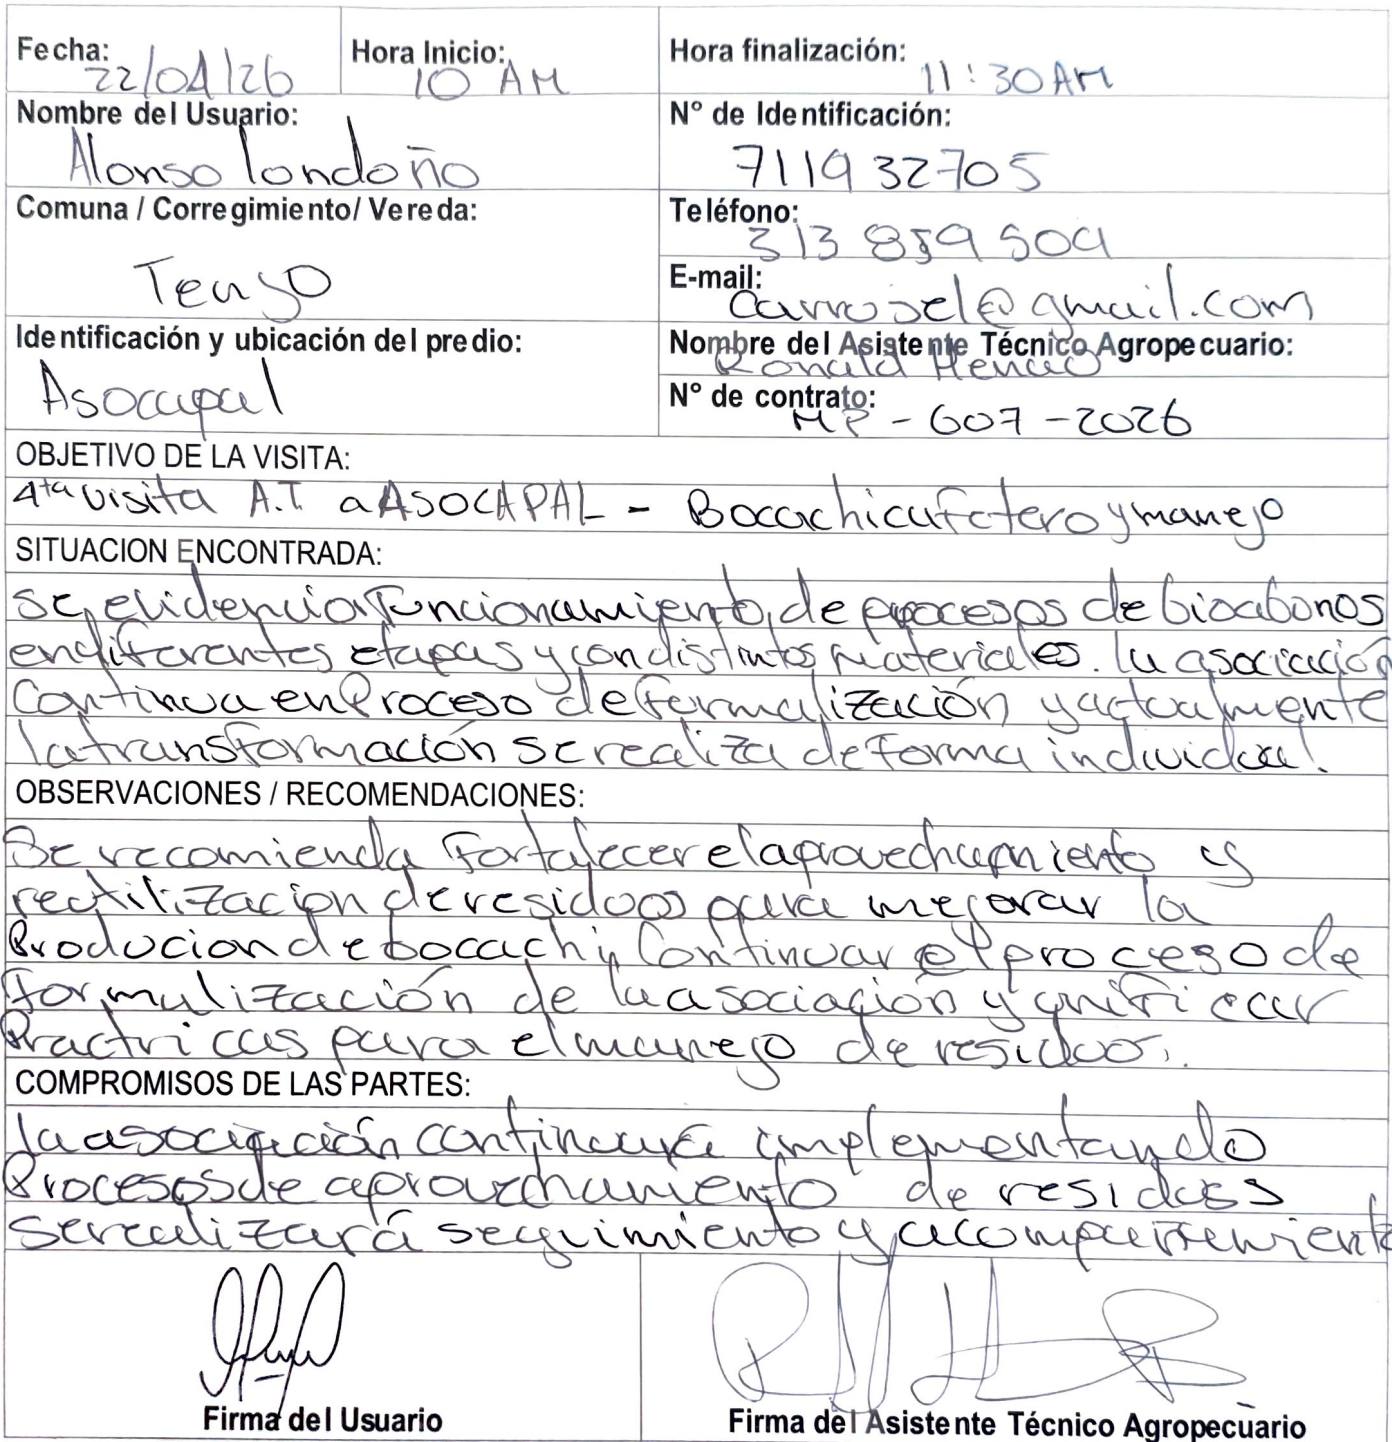 Fecha: 22/04/26
Hora Inicio: 10 AM
Hora finalización: 11:30 AM
Nombre del Usuario:
Alonso londoño
N° de Identificación:
711932705
Comuna / Corregimiento/ Vereda:
Tenjo
Teléfono:
313 859 504
E-mail:
Carrosel@gmail.com
Identificación y ubicación del predio:
Asocapal
Nombre del Asistente Técnico Agropecuario:
Ronald Henao
N° de contrato:
MP - 607 - 2026
OBJETIVO DE LA VISITA:
4ta visita A.T. a ASOCAPAL - Bocachi y manejo
SITUACION ENCONTRADA:
se evidencia funcionamiento de procesos de bioabonos
en diferentes etapas y con distintos materiales. la asociación
Continua en Proceso de formalización y actualmente
la transformación se realiza de forma individual.
OBSERVACIONES / RECOMENDACIONES:
Se recomienda Fortalecer el aprovechamiento y
reutilización de residuos para mejorar la
Producion de bocachi, Continuar el proceso de
formalización de la asociación y unificar
Practicas para el manejo de residuos.
COMPROMISOS DE LAS PARTES:
la asociación continuará implementando
Procesos de aprovechamiento de residuos
se realizará seguimiento y acompañamiento
Firma del Usuario
Firma del Asistente Técnico Agropecuario